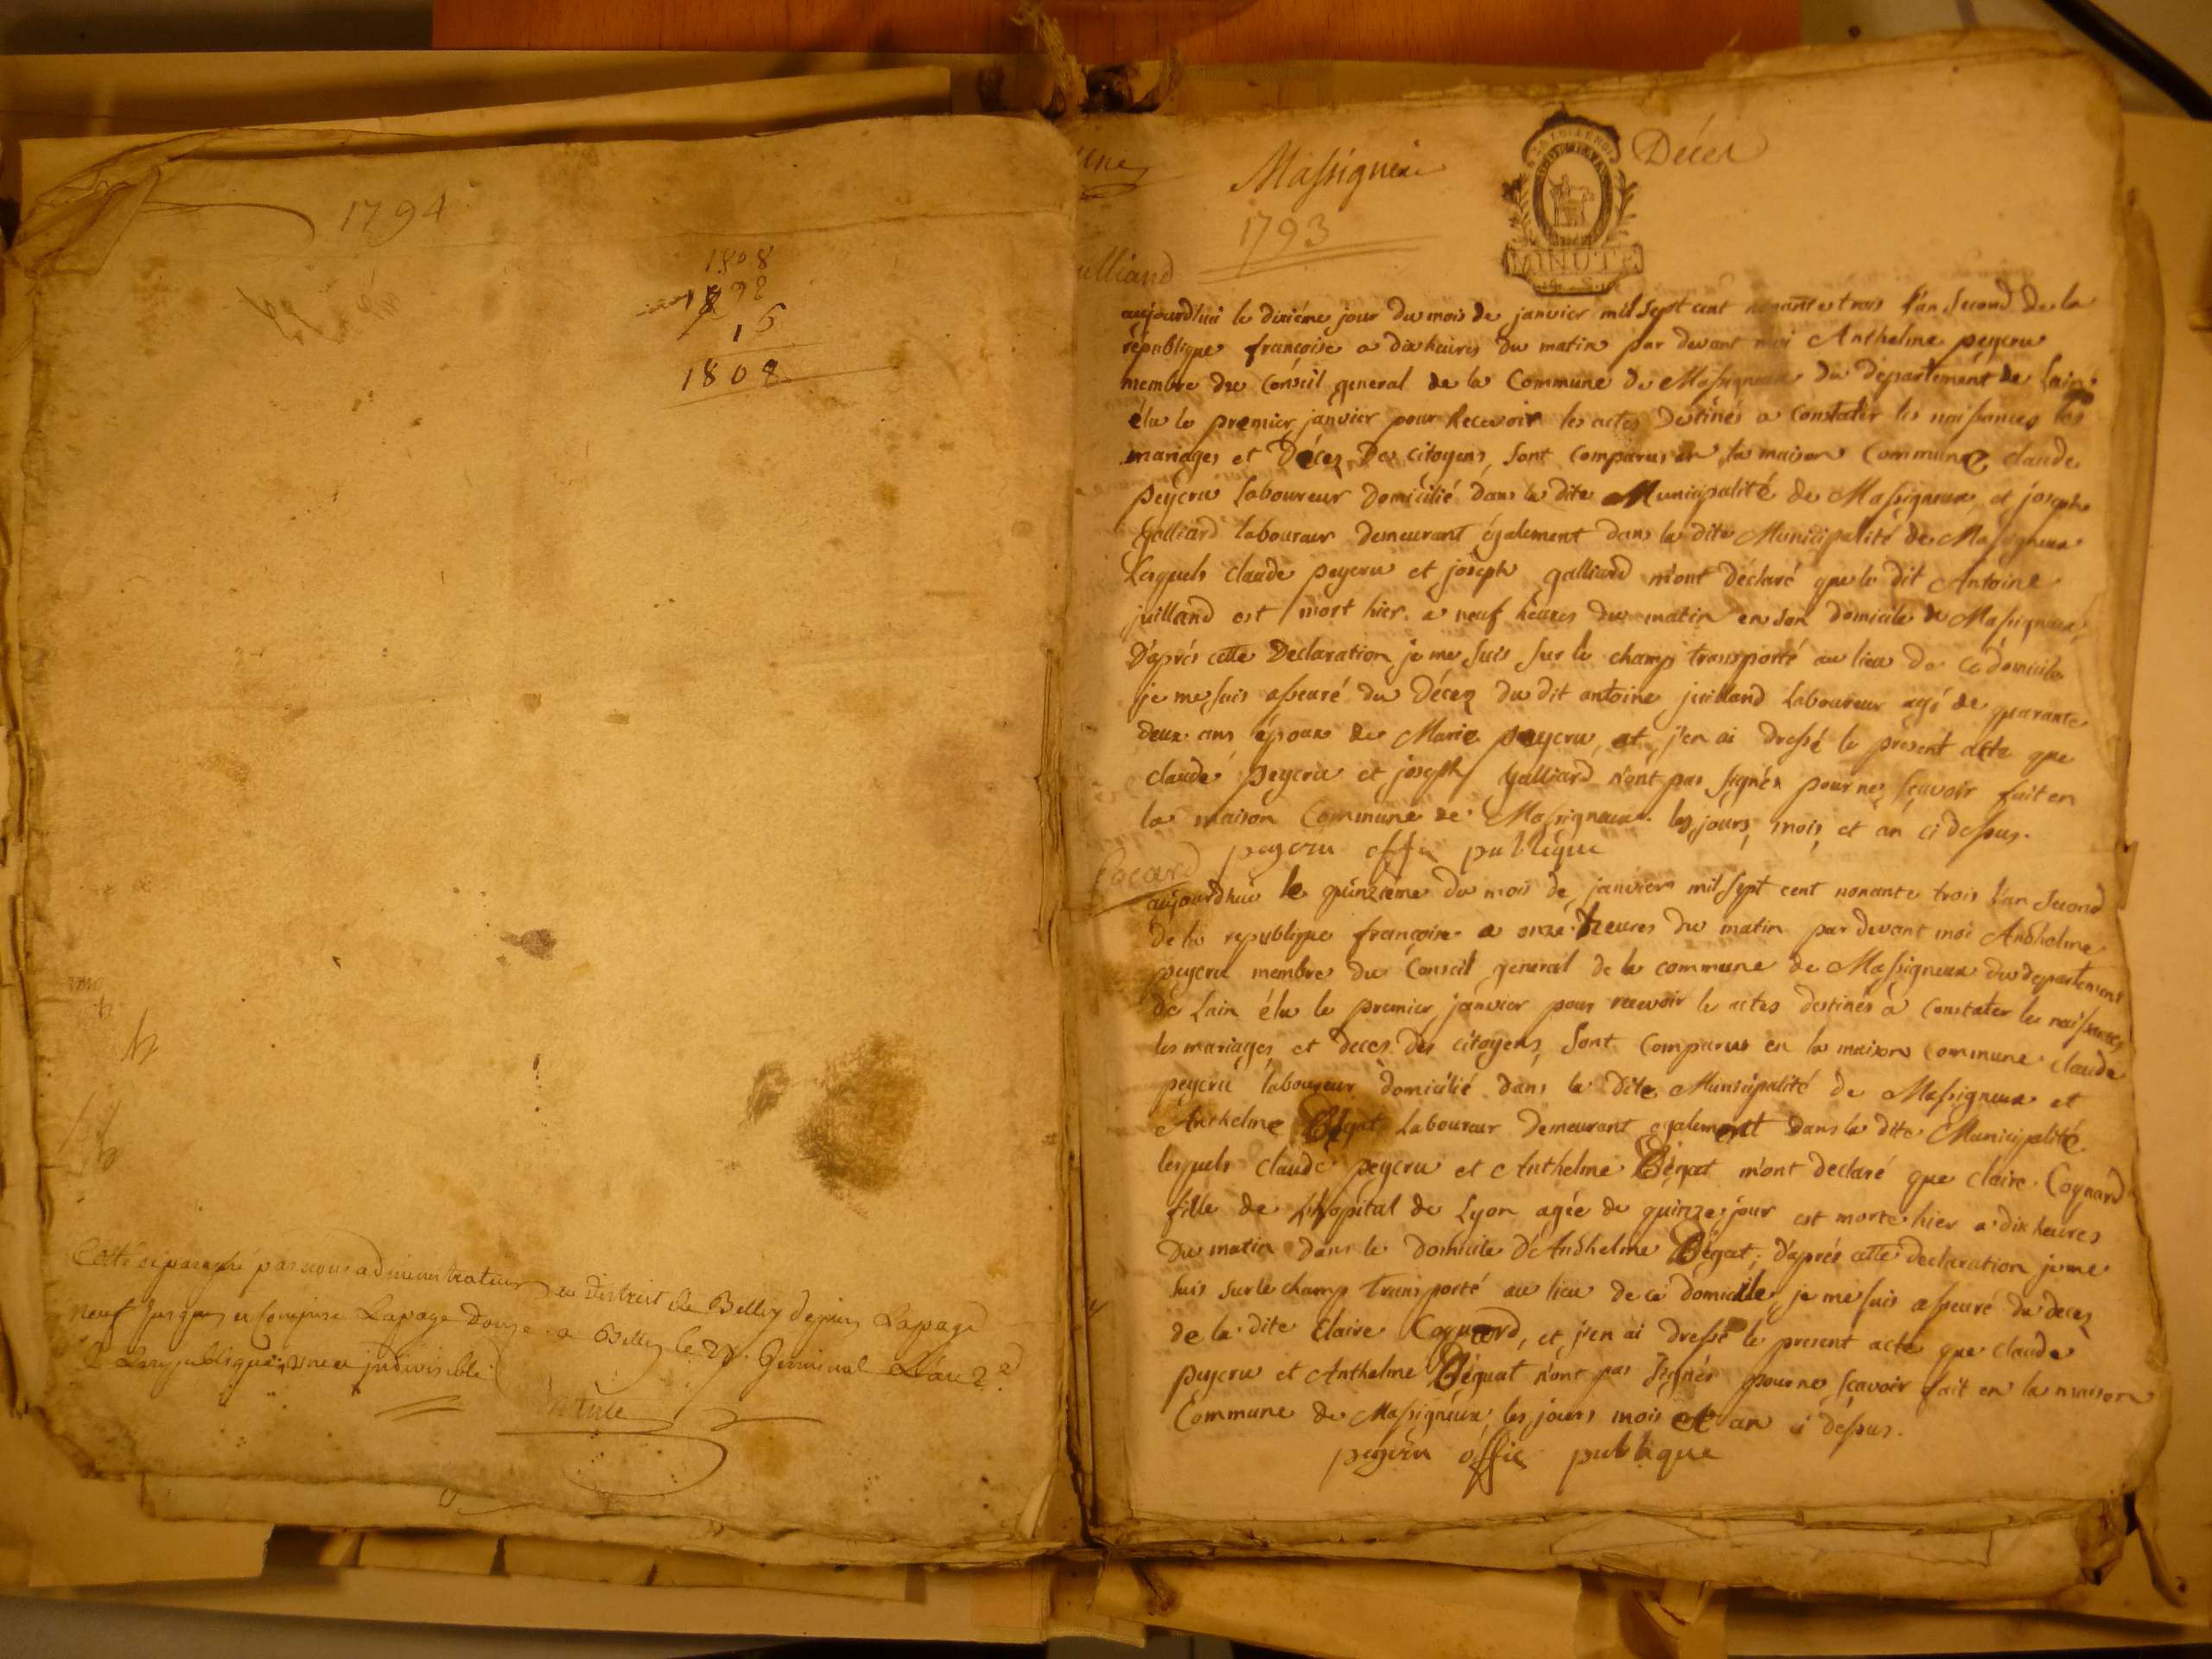 1794
1808
15
1808
Cotté et paraphé par nous administrateur du District de Belley depuis La page
neuf jusques et comprise La page Douze a Belley le 27 Germinal L'an 2e
de La republique une et jndivisible
Massigneu
Décer
1793
LA LOI LE ROI
MINUTE
aujourd'hui le dixiéme jour du mois de janvier mil sept cent nonante trois l'an Second de la
république françoise a dix heures du matin par devant moi Anthelme peycru
membre du Conseil general de la Commune de Massigneux du département de Lain
élu le premier janvier pour Recevoir les actes Destinés a Constater les naissances les
mariages et Décez Des citoyens, sont comparus en la maison Commune claude
peycru laboureur domicilié dans la dite Municipalité de Massigneux, et joseph
galliard laboureur Demeurant également dans la dite Municipalité de Massigneux
Lesquels claude peycru et joseph galliard m'ont déclaré que le dit Antoine
juilland est mort hier a neuf heures du matin en son domicile de Massigneux,
D'aprés cette Declaration je me suis sur le champ transporté au lieu de ce domicile
je me suis asseuré du Décez du dit antoine juilland Laboureur agé de quarante
deux ans époux de Marie peycru, et j'en ai dressé le present acte que
claude peycru et joseph galliard n'ont pas signés pour ne sçavoir fait en
la maison Commune de Massigneux les jours, mois, et an ci dessus.
peycru offi publique
aujourdhui le quinziéme du mois de janvier mil sept cent nonante trois l'an second
de la republique françoise a onze heures du matin par devant moi Anthelme
peycru membre du Conseil general de la commune de Massigneux du departement
de Lain élu le premier janvier pour recevoir le actes destinés à constater les naissances
les mariages et deces des citoyens, sont Comparus en la maison commune claude
peycru laboureur domicilié dans la dite Municipalité de Massigneux et
Anthelme Bégat Laboureur demeurant egalement dans la dite Municipalité
lesquels claude peycru et Anthelme Bégat m'ont declaré que claire Cognard
fille de L'hopital de Lyon agée de quinze jour est morte hier a dix heures
du matin dans le domicile d'Anthelme Bégat; d'aprés cette declaration je me
suis sur le champ transporté au lieu de ce domicile, je me suis asseuré du decez
de la dite Claire Cognard, et j'en ai dressé le present acte que claude
peycru et Anthelme Béguat n'ont pas signés pour ne sçavoir fait en la maison
Commune de Massigneux, les jours mois et an ci dessus.
peycru offic publique